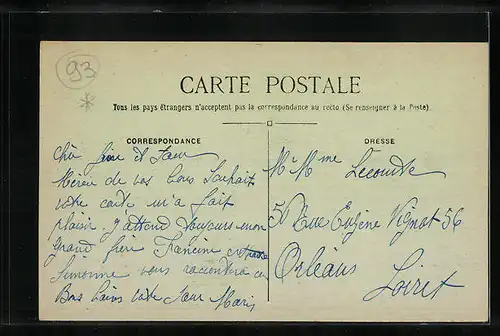 93
CARTE POSTALE
Tous les pays étrangers n'acceptent pas la correspondance au recto (Se renseigner à la Poste).
CORRESPONDANCE
DRESSE
et Sœur
de vos bons Souhait
votre carte m'a fait
plaisir J attend toujours mon
grand frère Francine et
Simonne vous racontera
Bons votre Sœur Marie
M Mme Lecomte
56 Rue Eugène Vignat 56
Orléans
Loiret